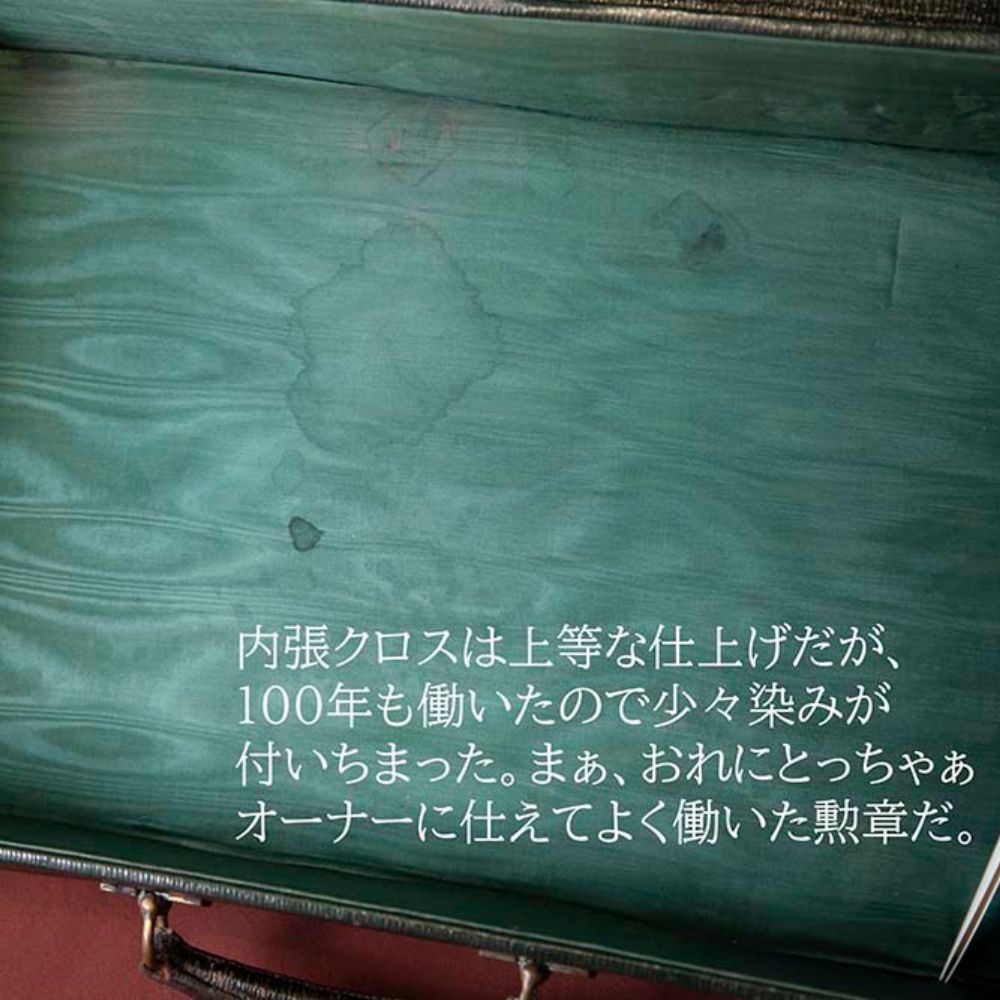 内張クロスは上等な仕上げだが、
100年も働いたので少々染みが
付いちまった。まぁ、おれにとっちゃぁ
オーナーに仕えてよく働いた勲章だ。